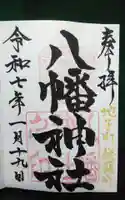 奉拝
八幡神社
令和七年一月十九日